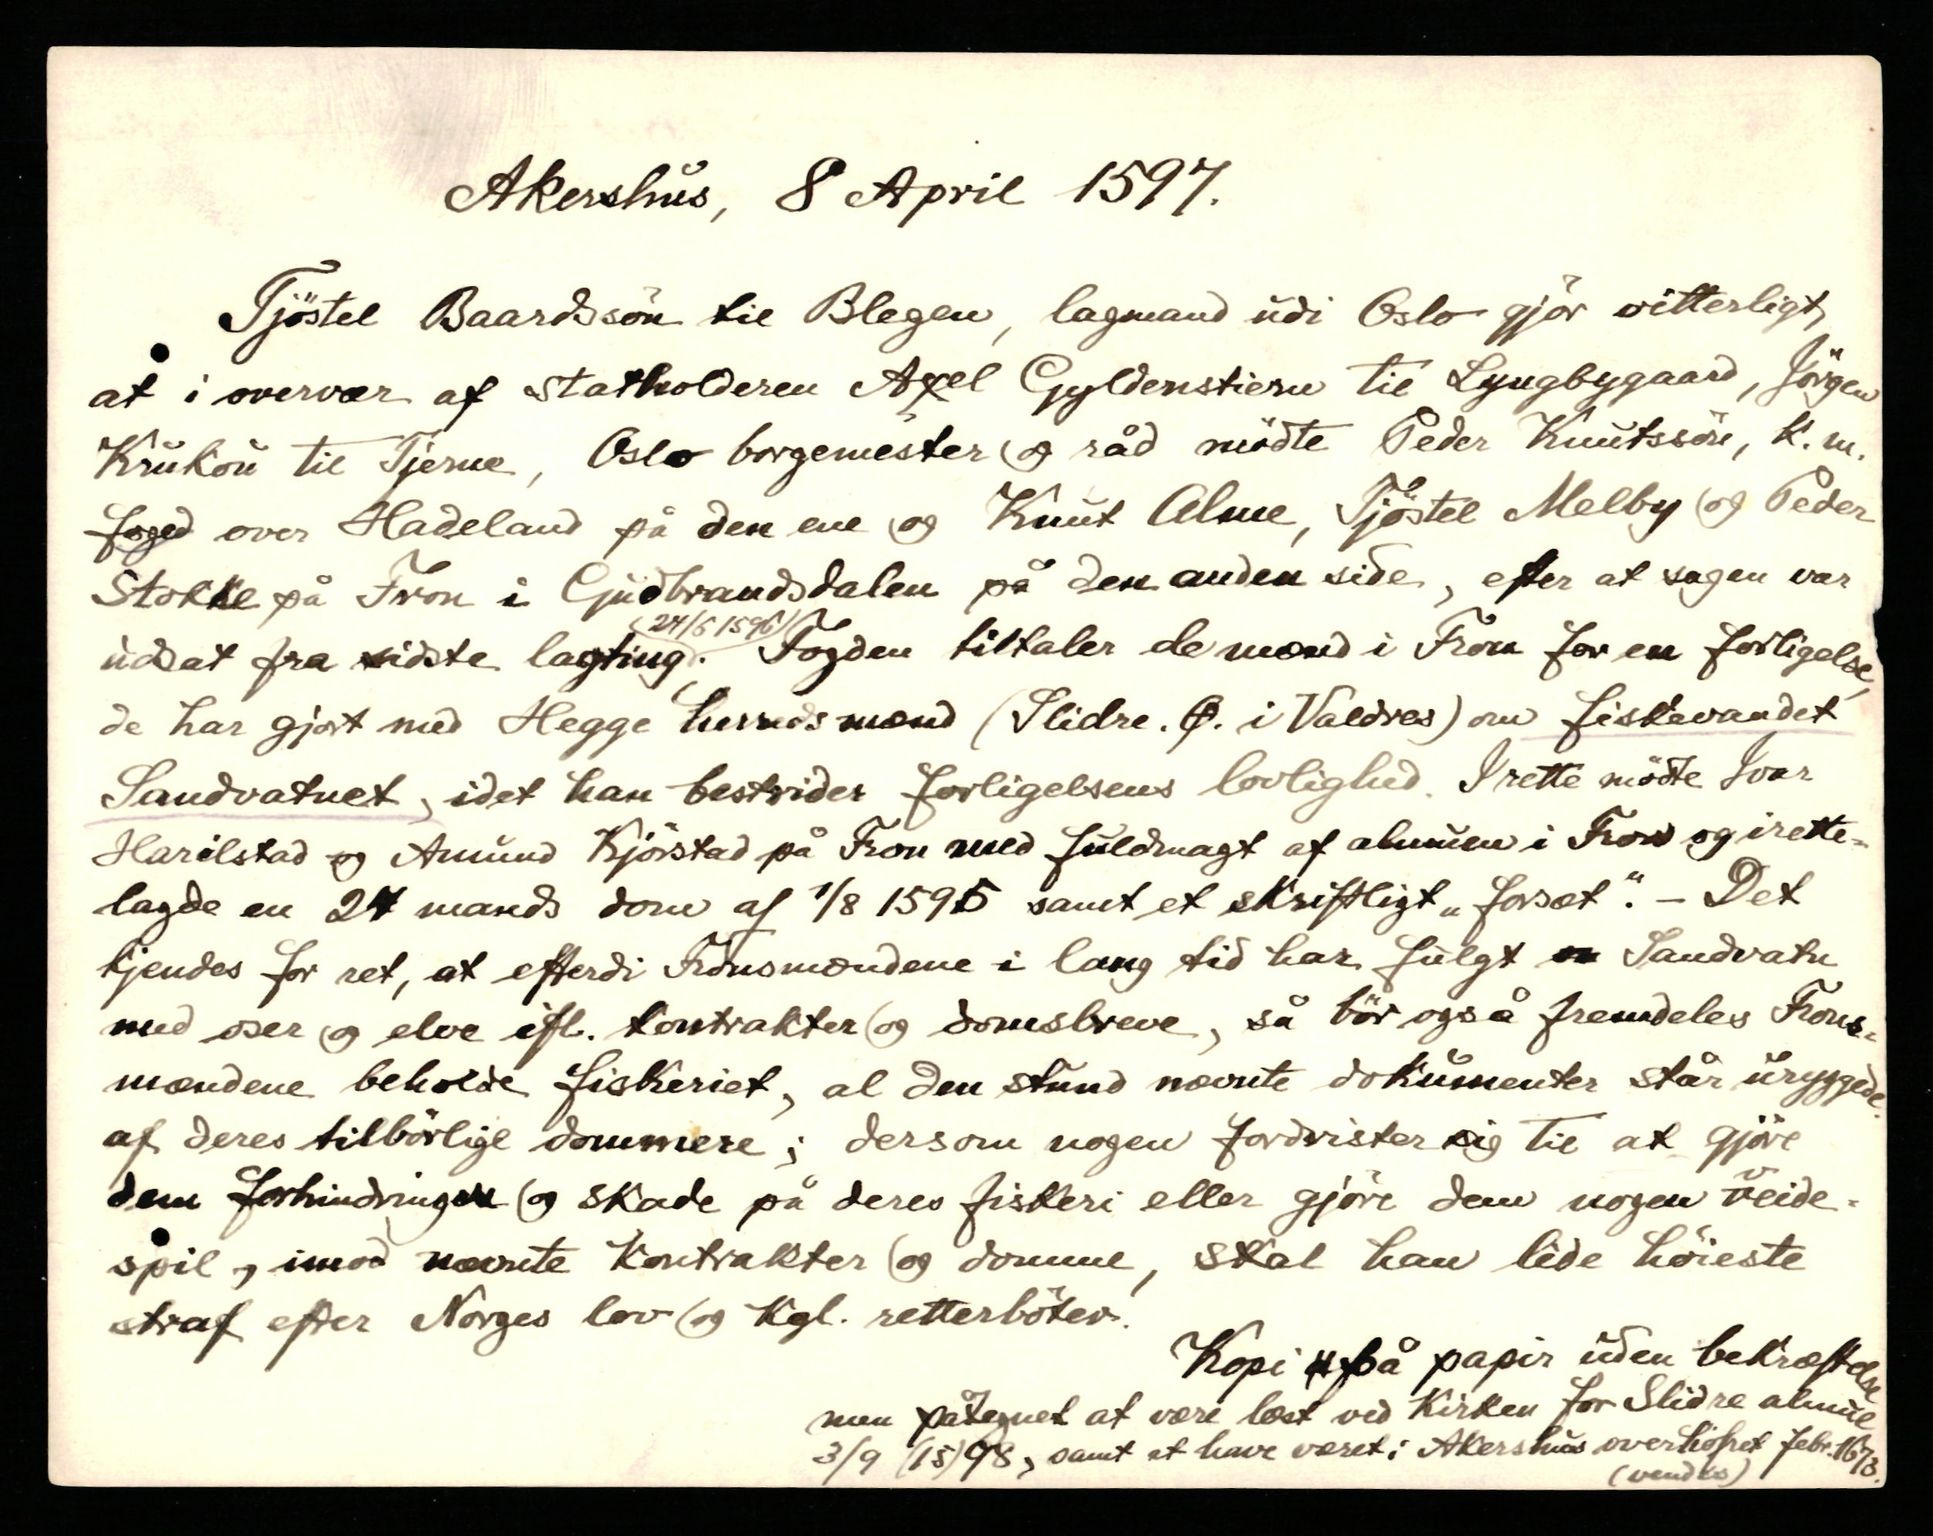 Akershus, 8 April 1597.
Tjöstel Baardssön til Blegen, lagmand udi Oslo gjör vitterligt,
at i overvær af statholderen Axel Gyldenstiern til Lyngbygaard, Jörgen
Krukou til Tjerne, Oslo borgemester og råd mödte Peder Knutssön, k. m.
foged over Hadeland på den ene og Knut Alme, Tjöstel Melby og Peder
Stokke på Fron i Gudbrandsdalen på den anden side, efter at sagen var
udsat fra sidste lagting (24/5 1596). Fogden tiltaler de mænd i Fron for en forligelse,
de har gjort med Hegge herredsmænd (Slidre. Ø. i Valdres) om fiskevandet
Sandvatnet, idet han bestrider forligelsens lovlighed. I rette mödte Ivar
Harilstad og Amund Kjörstad på Fron med fuldmagt af almuen i Fron og irette-
lagde en 24 mands dom af 1/8 1595 samt et skriftligt „forsæt“. – Det
kjendes for ret, at efterdi Fronsmændene i lang tid har fulgt Sandvatn
med oser og elve ifl. kontrakter og domsbreve, så bör også fremdeles Frons-
mændene beholde fiskeriet, al den stund nævnte dokumenter står uryggede
af deres tilbörlige dommere; dersom nogen fordrister sig til at gjöre
dem forhindringer og skade på deres fiskeri eller gjöre dem nogen veide-
spil, imod nævnte kontrakter og domme, skal han lide höieste
straf efter Norges lov og Kgl. retterböter.
Kopi på papir uden bekræftelse
men påtegnet at være læst ved Kirken for Slidre almue
3/9 (15)98, samt at have været i Akershus overhofret febr. 1673.
(vendes)